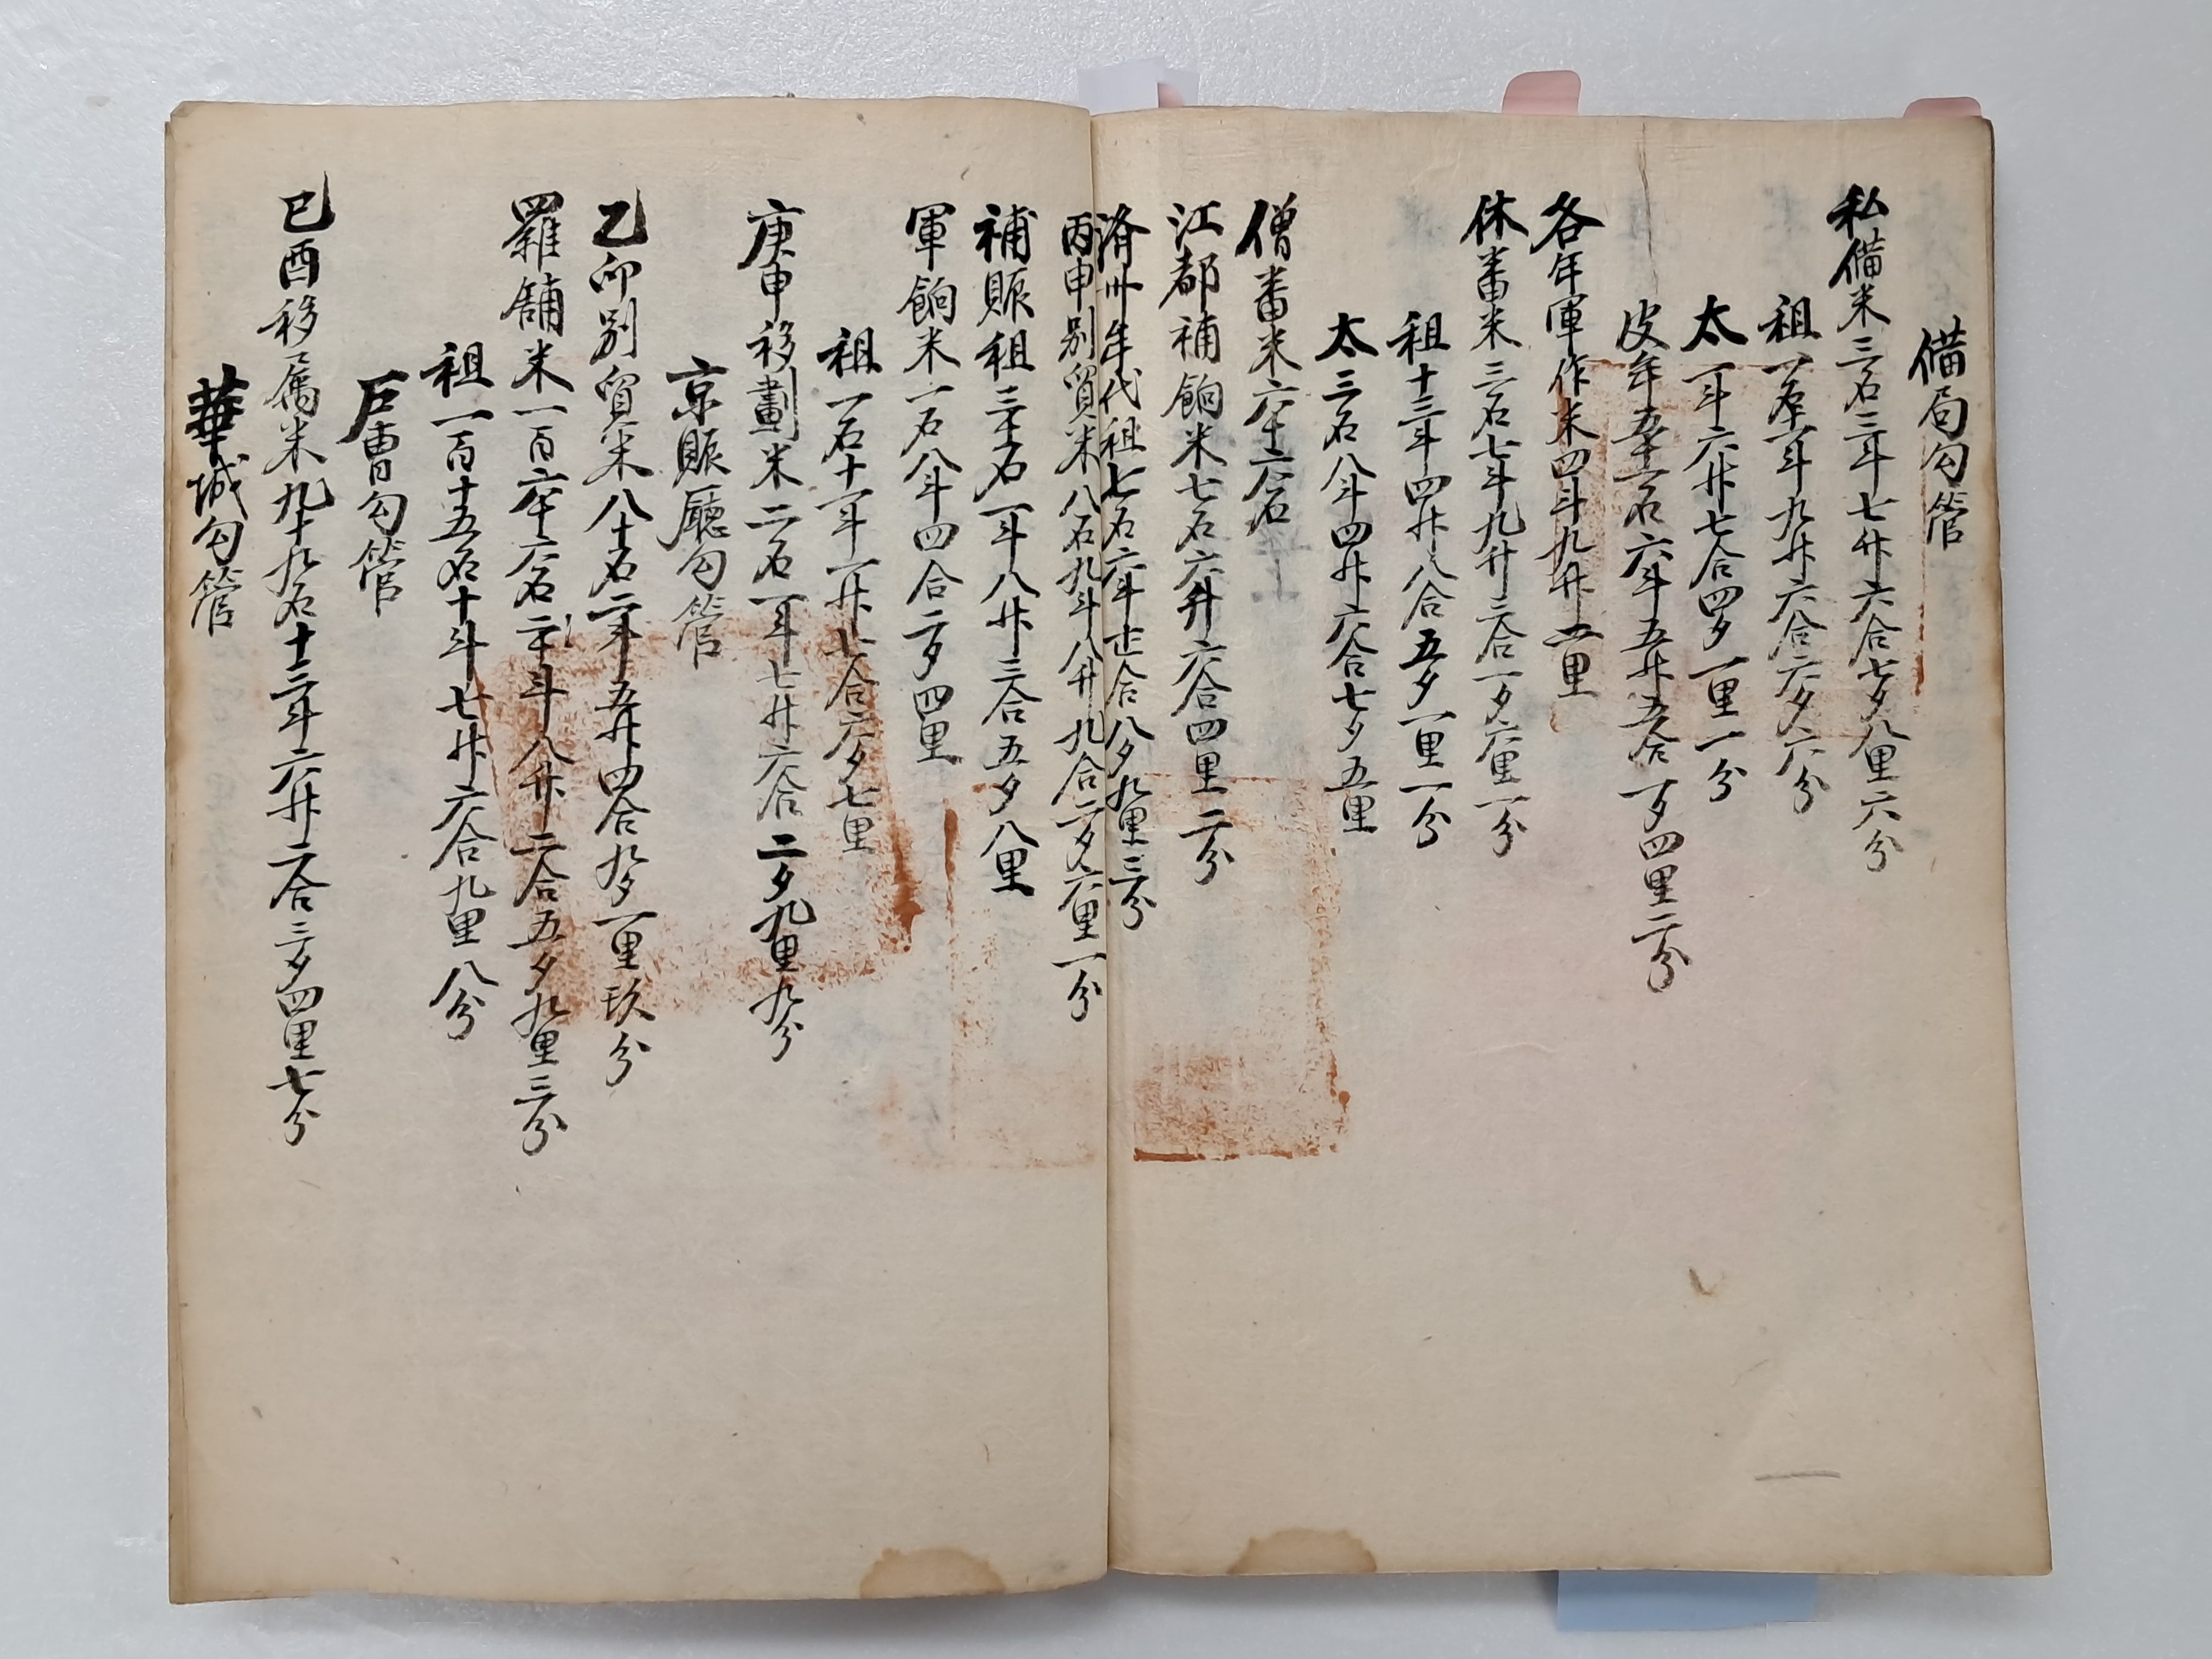 備局勾管
私備米三石三斗七升六合七夕八里六分
租一石一斗九升六合六夕六分
太一斗六升七合四夕一里一分
皮年五十一石六斗五升五合一夕四里二分
各年軍作米四斗九升二里
休番米三石七斗九升二合一夕六里一分
租十三斗四升八合五夕一里一分
太三石八斗四升六合七夕五里
僧番米六十六石
江都補餉米七石六升六合四里二分
濟州年代租七石六斗 合八夕九里三分
丙申別貿米八石九斗八升九合二夕六里一分
補賑租三十石一斗八升三合五夕八里
軍餉米一石八斗四合二夕四里
租一石十一斗一升七合六夕七里
庚申移劃米二石一斗七升六合二夕九里九分
京賑廳勾管
乙卯別貿米八十石二斗五升四合九夕一里玖分
羅舖米一百六十六石二斗八升二合五夕九里三分
租一百十五石十斗七升六合九里八分
戶曹勾管
己酉移属米九十九石十三斗六升二合三夕四里七分
華城勾管